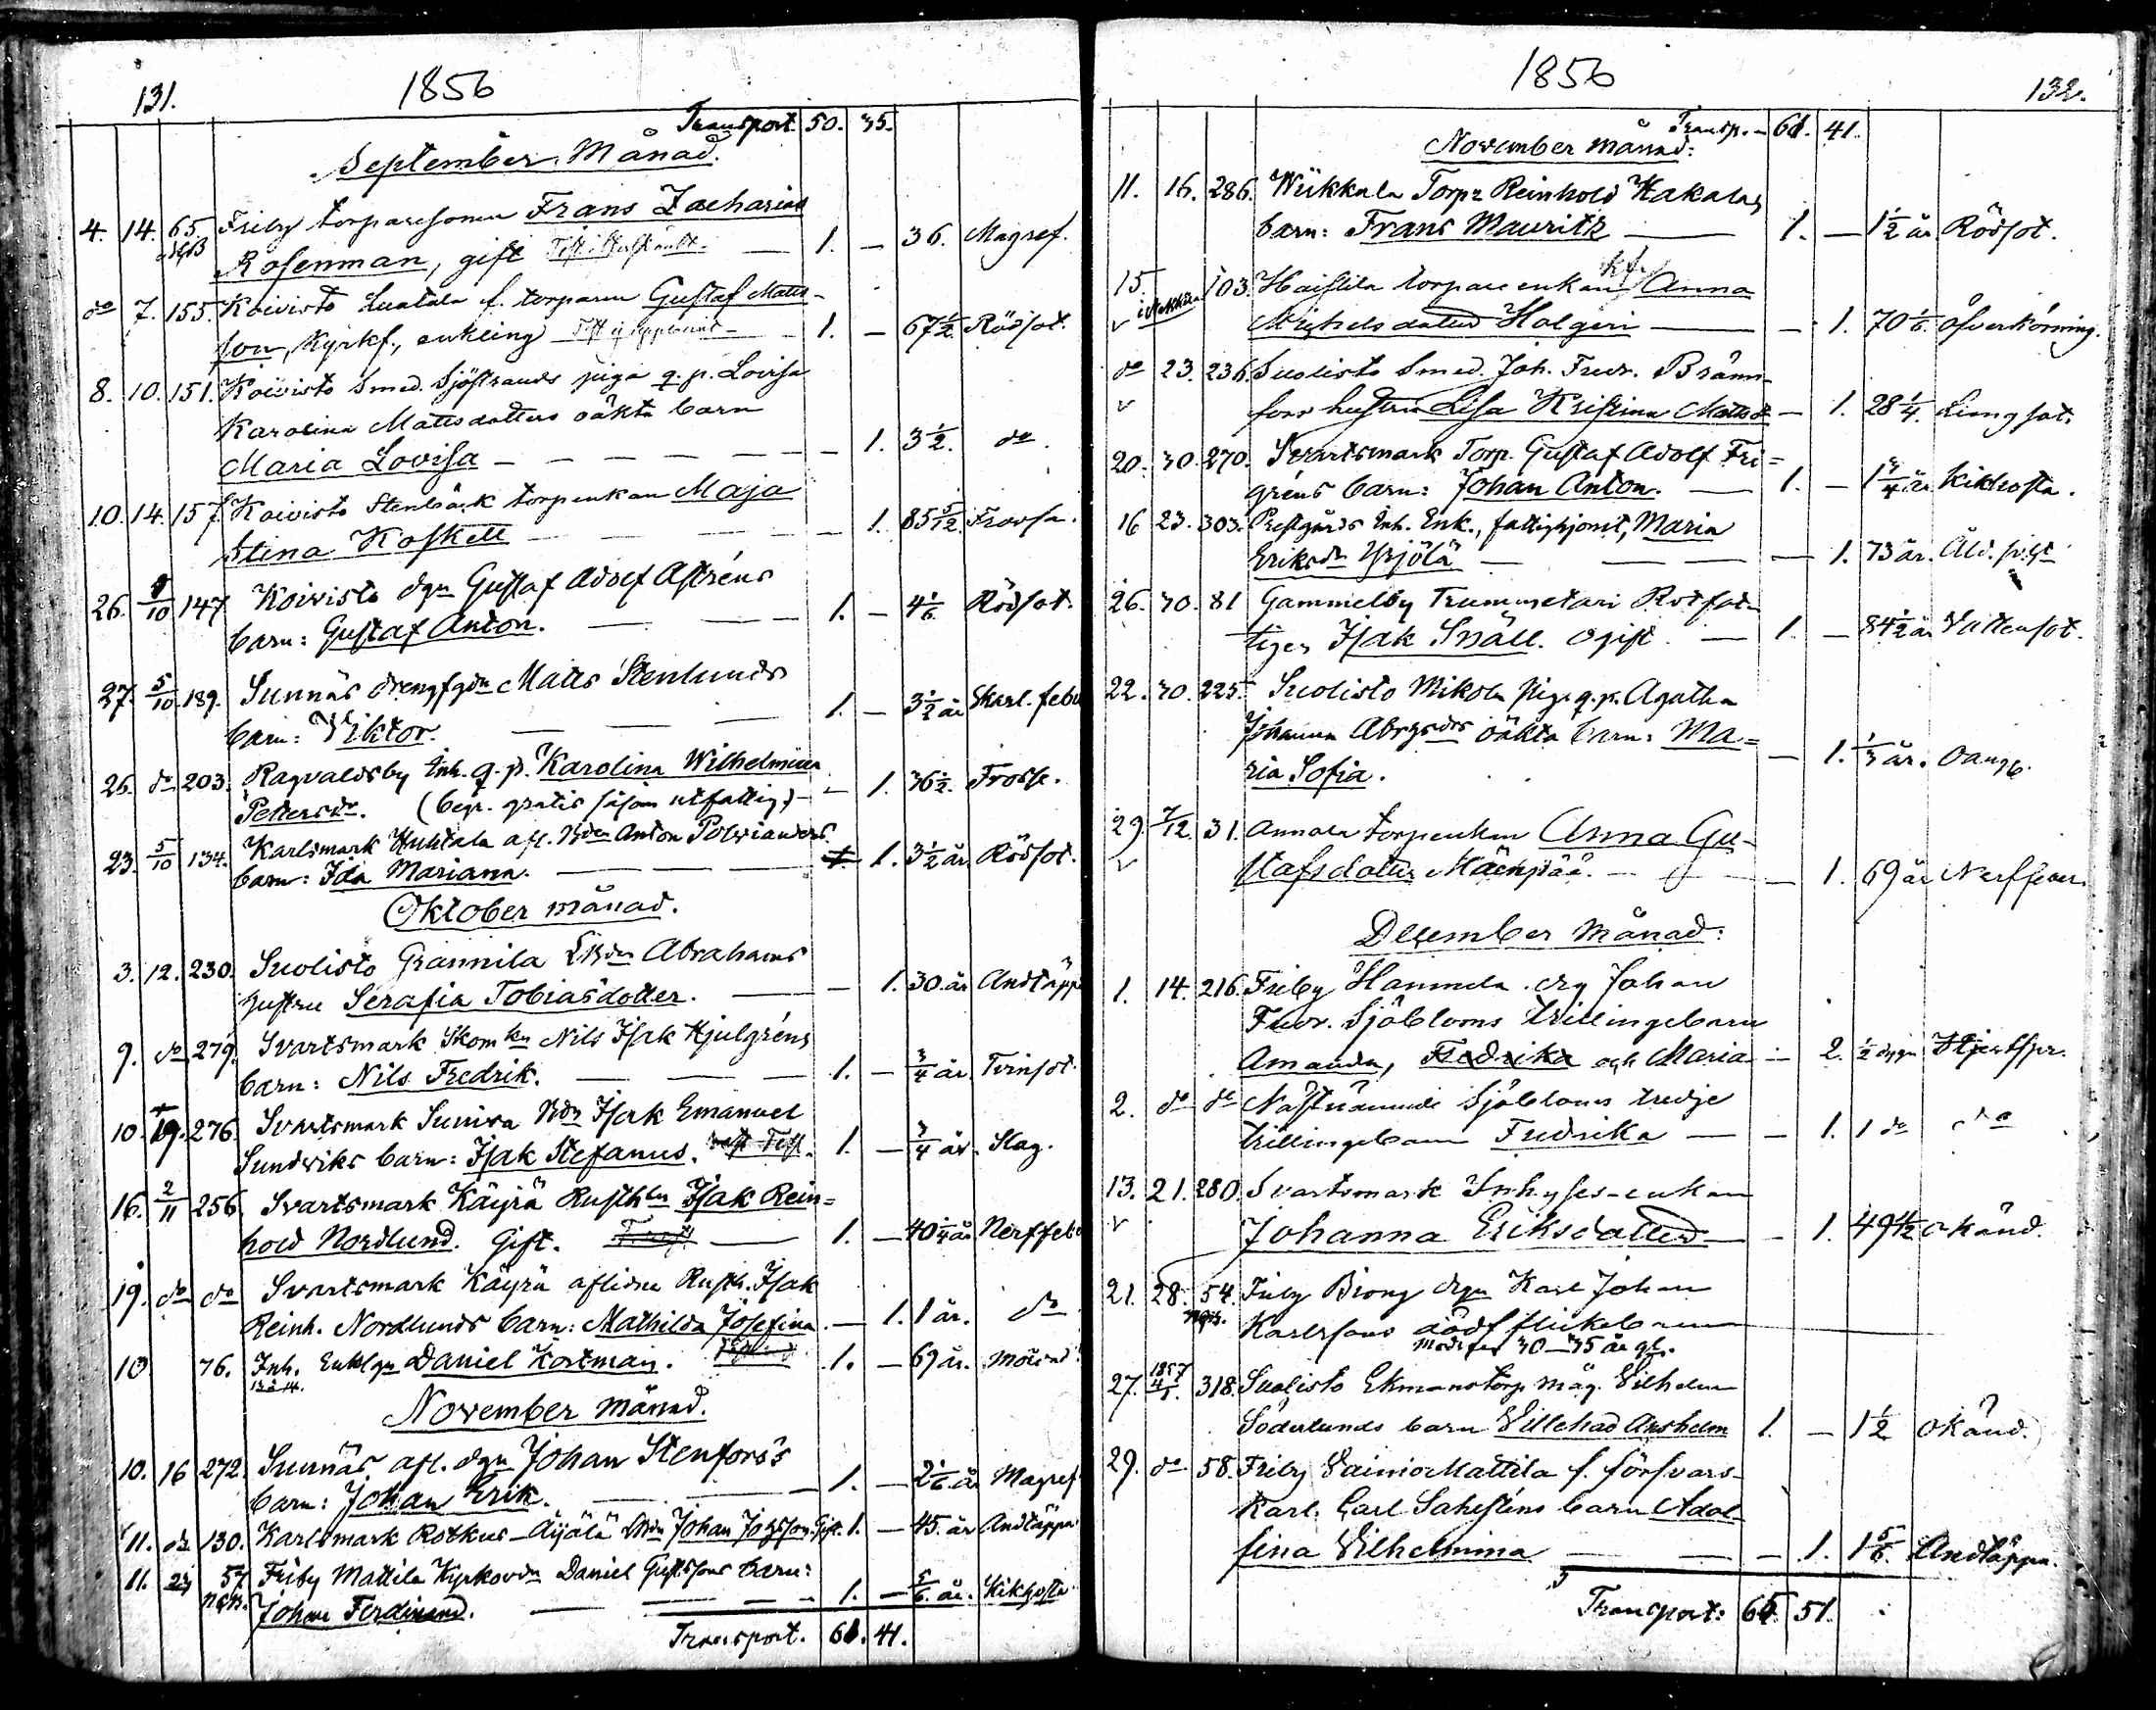 131.
1856
Transport. 50. 35.
September Månad.
4. 14. 65. Friby torparesonen Frans Zacharias
Rosenman, gift 1. — 36. Magref.
do 7. 155. Koivisto Luatala f. torparen Gustaf Matts-
son, Kyrkf., enkling 1. — 67 1/2 Rödsot.
8. 10. 151. Koivisto Smed. Sjöstrands piga q. p. Lovisa
Karolina Mattsdotters oäkta barn
Maria Lovisa — — — — — 1. 3 1/2. do.
10. 14. 157. Koivisto Stenbäck torpenkan Maja
Stina Koskell — — — 1. 85 5/12. Frossa.
26. 5/10 147. Koivisto dgn Gustaf Adolf Astréns
barn: Gustaf Anton. — — — 1. — 4 1/6 Rödsot.
27. 5/10. 189. Sunnäs Matts Stenlunds
barn: Viktor. — — 1. — 3 1/2 år Skarl. feber
26. do 203. Ragvaldsby Inh. q. p. Karolina Wilhelmina
Pettersdr. (begr. gratis såsom utfattig) — 1. 36 1/2. Frossa.
23. 5/10 134. Karlsmark Huhtala afl. Anton Polvianders
barn: Ida Mariana. — — — 1. 3 1/2 år Rödsot.
Oktober månad.
3. 12. 230. Suolisto Grannila Abrahams
hustru Serafia Tobiasdotter. — — 1. 30. år Andtäpp
9. do 279. Svartsmark Skomkn Nils Isak Hjulgréns
barn: Nils Fredrik. — — — 1. — 3/4 år. Tvinsot.
10. 19. 276. Svartsmark Isak Emanuel
Sundviks barn: Isak Stefanus. 1. — 3/4 år. Slag.
16. 2/11 256. Svartsmark Käyrä Rusthln Isak Rein=
hold Nordlund. Gift. — 1. — 40 1/4 år Nerffeb
19. do do Svartsmark Käyrä aflidne Rusth. Isak
Reinh. Nordlunds barn: Mathilda Josefina. — 1. 1 år. do
10 76. Inh. Enklgn Daniel Kortman. 1. — 69 år.
November månad.
10. 16 272. Sunnäs afl. dgn Johan Stenfors's
barn: Johan Erik. — — 1. — 2 1/6. år Magref
11. do. 130. Karlsmark Rotkus-Äijälä Johan Gift. 1. — 45. år Andtäppa
11. 23 57 Friby Mattila Kyrkovdn Daniel Gustfsons barn:
Johan Ferdinand. — — — 1. — 5/6. år. Kikhosta
Transport. 61. 41.
1856
132.
Transp. — 61. 41.
November månad:
11. 16. 286. Wiikkala Torpr Reinhold Kakalas
barn: Frans Mauritz — 1. — 1 1/2 år Rödsot.
15. 103. Haistila torpare enkan Anna
Michelsdotter Holgeri — — 1. 70 1/6. öfverkörning.
do 23. 236. Suolisto Smed. Joh. Fredr. Bränn-
fors hustru Lisa Kristina Mattsdr — 1. 28 1/4. Lungsot.
20. 30. 270. Svartsmark Torp. Gustaf Adolf Fri=
gréns barn: Johan Anton. — 1. — 1 3/4 år Kikhosta.
16 23. 303. Prestgårds Inh. Enk., fattighjonet, Maria
Eriksdr Yrjölä — — — 1. 73 år. Åld.
26. 30. 81 Gammelby Trummetari Rotfat-
tigen Isak Snäll. Ogift. — 1. — 84 1/2 år Vattensot.
22. 30. 225. Suolisto Mikola Piga q. p. Agatha
Johanna oäkta barn: Ma=
ria Sofia. — 1. 1/3 år.
29. 7/12. 31. Annala torpenkan Anna Gu-
stafsdotter Mäenpää. — — 1. 69 år Nerffeber.
December månad:
1. 14. 216. Friby Hannula dg Johan
Fredr. Sjöbloms trillingebarn
Amanda, Fredrika och Maria — 2. 1/2 dygn Hjertspr.
2. do do Nästnämnde Sjöbloms tredje
trillingebarn Fredrika — — 1. 1 do do
13. 21. 280. Svartsmark Inhyses-enkan
Johanna Eriksdotter — 1. 49 okänd.
21. 28. 54. Friby dgn Karl Johan
Karlssons dödf flickebarn
Modren 30—35 år gl.
27. 1857 4/1. 318. Suolisto Ekmanstorp måg. Vilhelm
Söderlunds barn Villehad Anshelm 1. — 1 1/2 okänd.
29. do 58. Friby VainioMattila f. försvars-
karl. Carl Sahlsténs barn Adol-
fina Vilhelmina — — 1. 1 5/6. Andtäppa.
Transport: 65. 51.